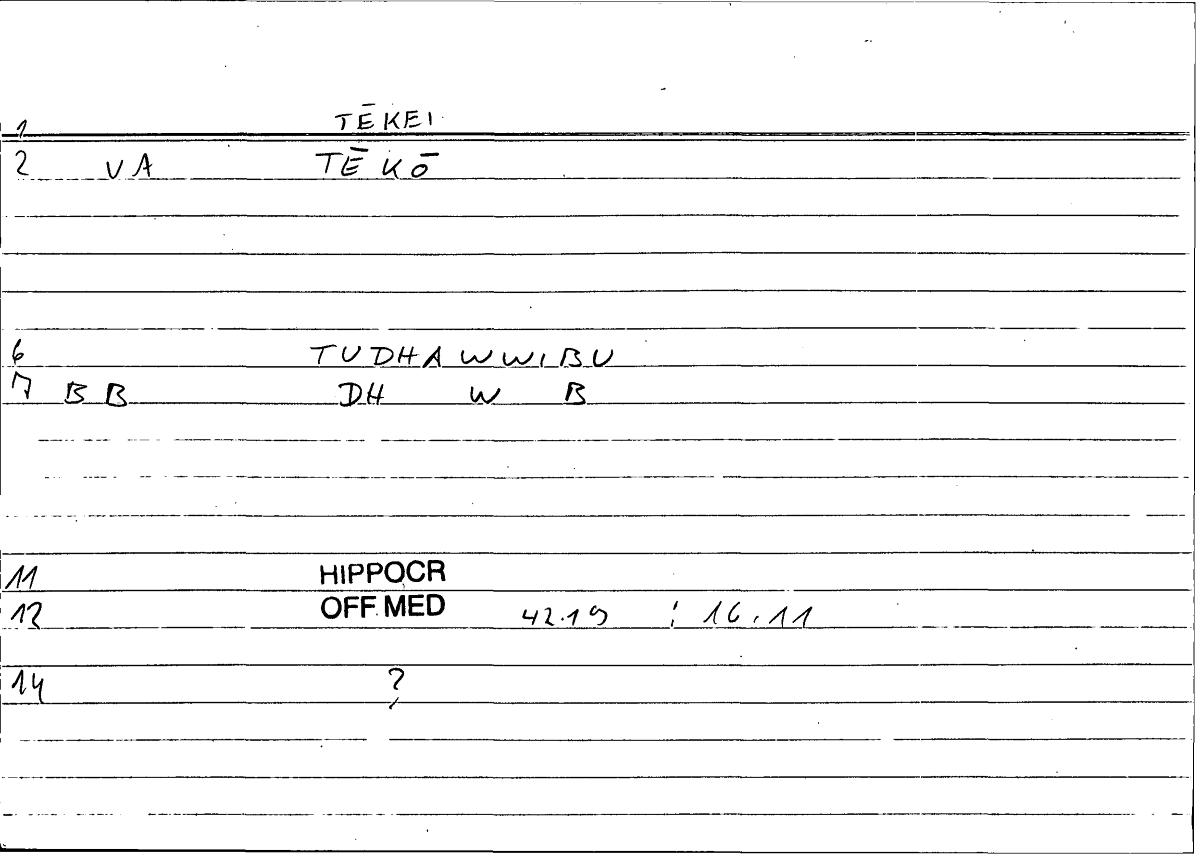 1 TĒKEI
2 VA TĒKŌ
6 TUDHAWWIBU
7 BB DH W B
11 HIPPOCR
12 OFF.MED 42.19 : 16.11
14 ?